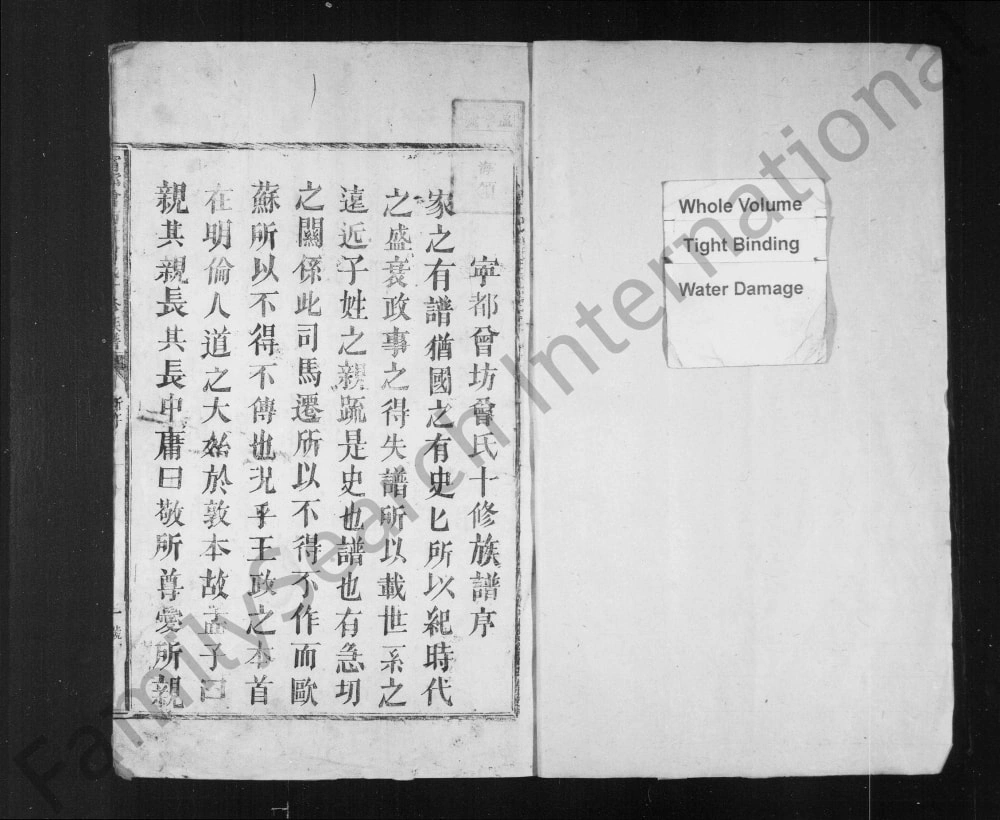 寧都曾坊曾氏十修族譜序
家之有譜猶國之有史匕所以紀時代
之盛衰政事之得失譜所以載世系之
遠近子姓之親疏是史也譜也有急切
之關係此司馬遷所以不得不作而歐
蘇所以不得不傳也況乎王政之本首
在明倫人道之大始於敦本故孟子曰
親其親長其長中庸曰敬所尊愛所親
Whole Volume
Tight Binding
Water Damage
FamilySearch International